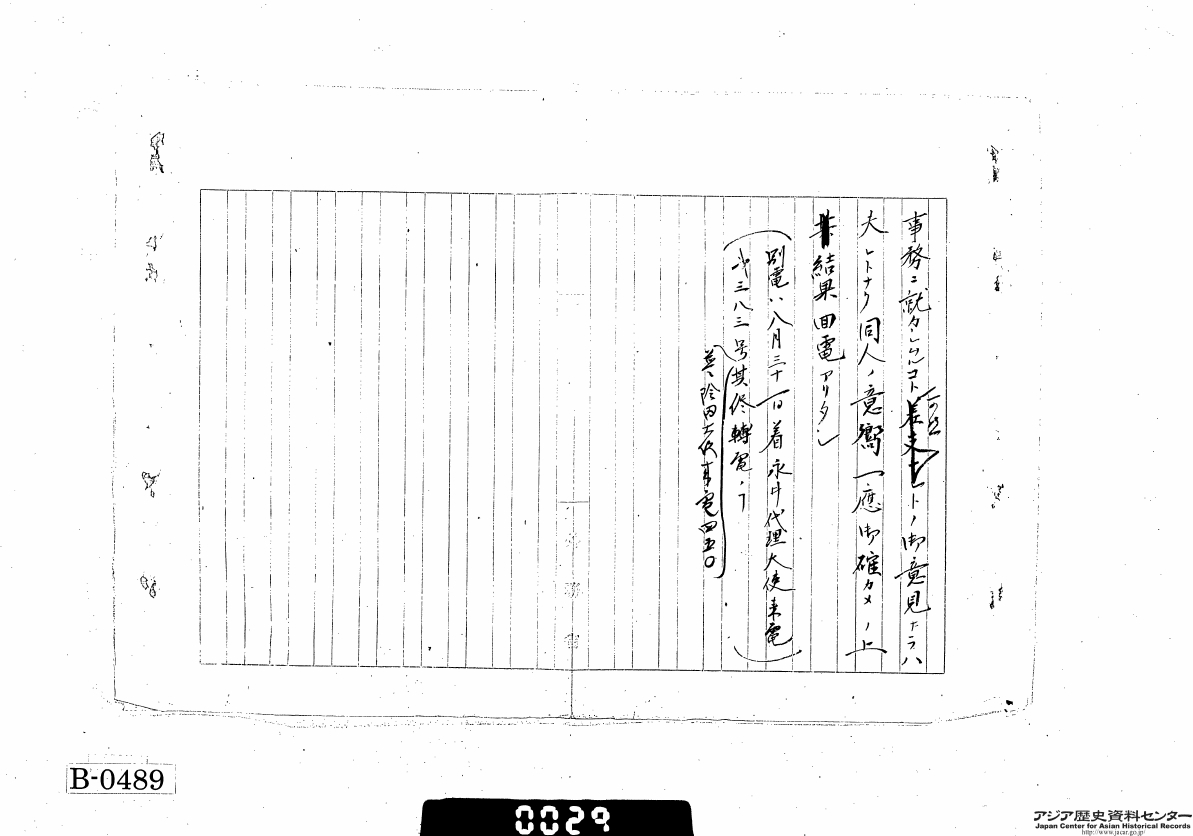 事務ニ就カシムルコト差支ナシトノ御意見ナラハ
夫レトナク同人ノ意嚮一應御確カメノ上
其結果回電アリタシ
(別電ハ八月三十一日着永井代理大使来電
第三八三号其侭轉電ノコト)
大使来電四五〇
外務省
B-0489
0029
アジア歴史資料センター
Japan Center for Asian Historical Records
http://www.jacar.go.jp/